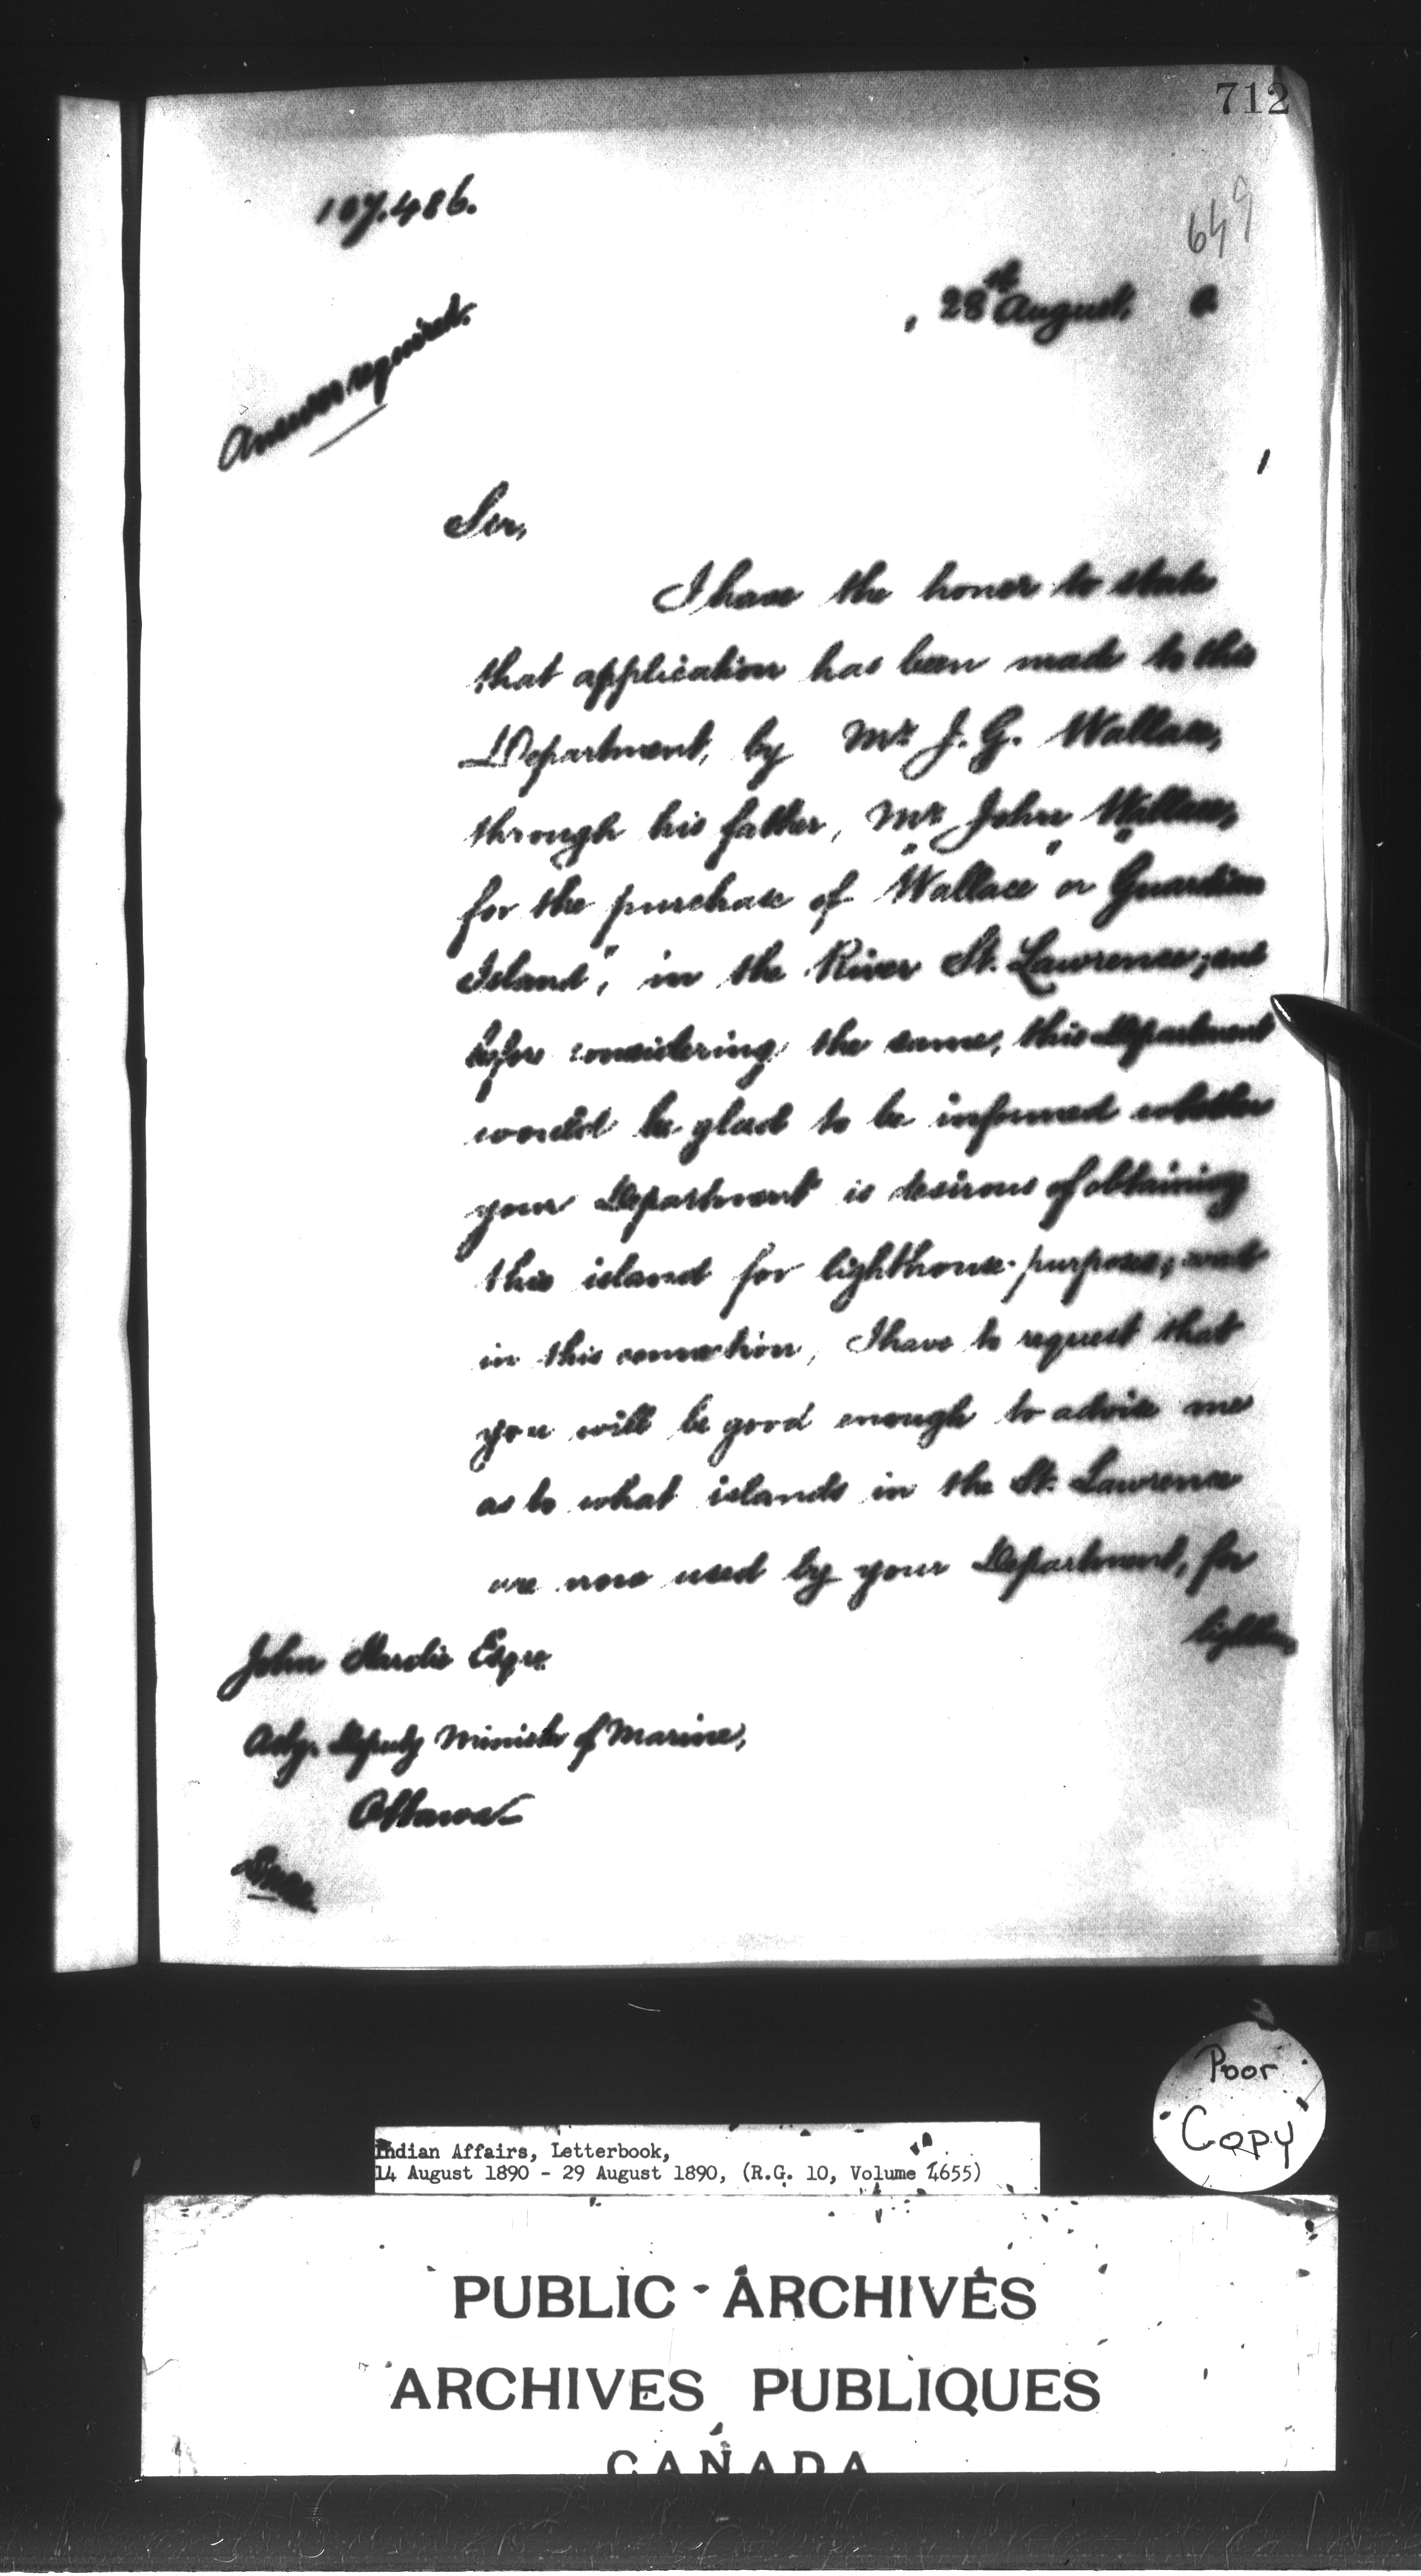 712
107.486.
649
28th August, 0
Answer required.
Sir,
I have the honor to state
that application has been made to this
Department, by Mr. J. G. Wallace,
through his father, Mr. John Wallace,
for the purchase of "Wallace" or "Guardian
Island", in the River St. Lawrence; and
before considering the same, this Department
would be glad to be informed whether
your Department is desirous of obtaining
this island for lighthouse purposes; and
in this connection, I have to request that
you will be good enough to advise me
as to what islands in the St. Lawrence
are now used by your Department, for
John Hardie Esqre
Actg. Deputy Minister of Marine,
Ottawa
Poor
Copy
Indian Affairs, Letterbook,
14 August 1890 - 29 August 1890, (R.G. 10, Volume 4655)
PUBLIC ARCHIVES
ARCHIVES PUBLIQUES
CANADA